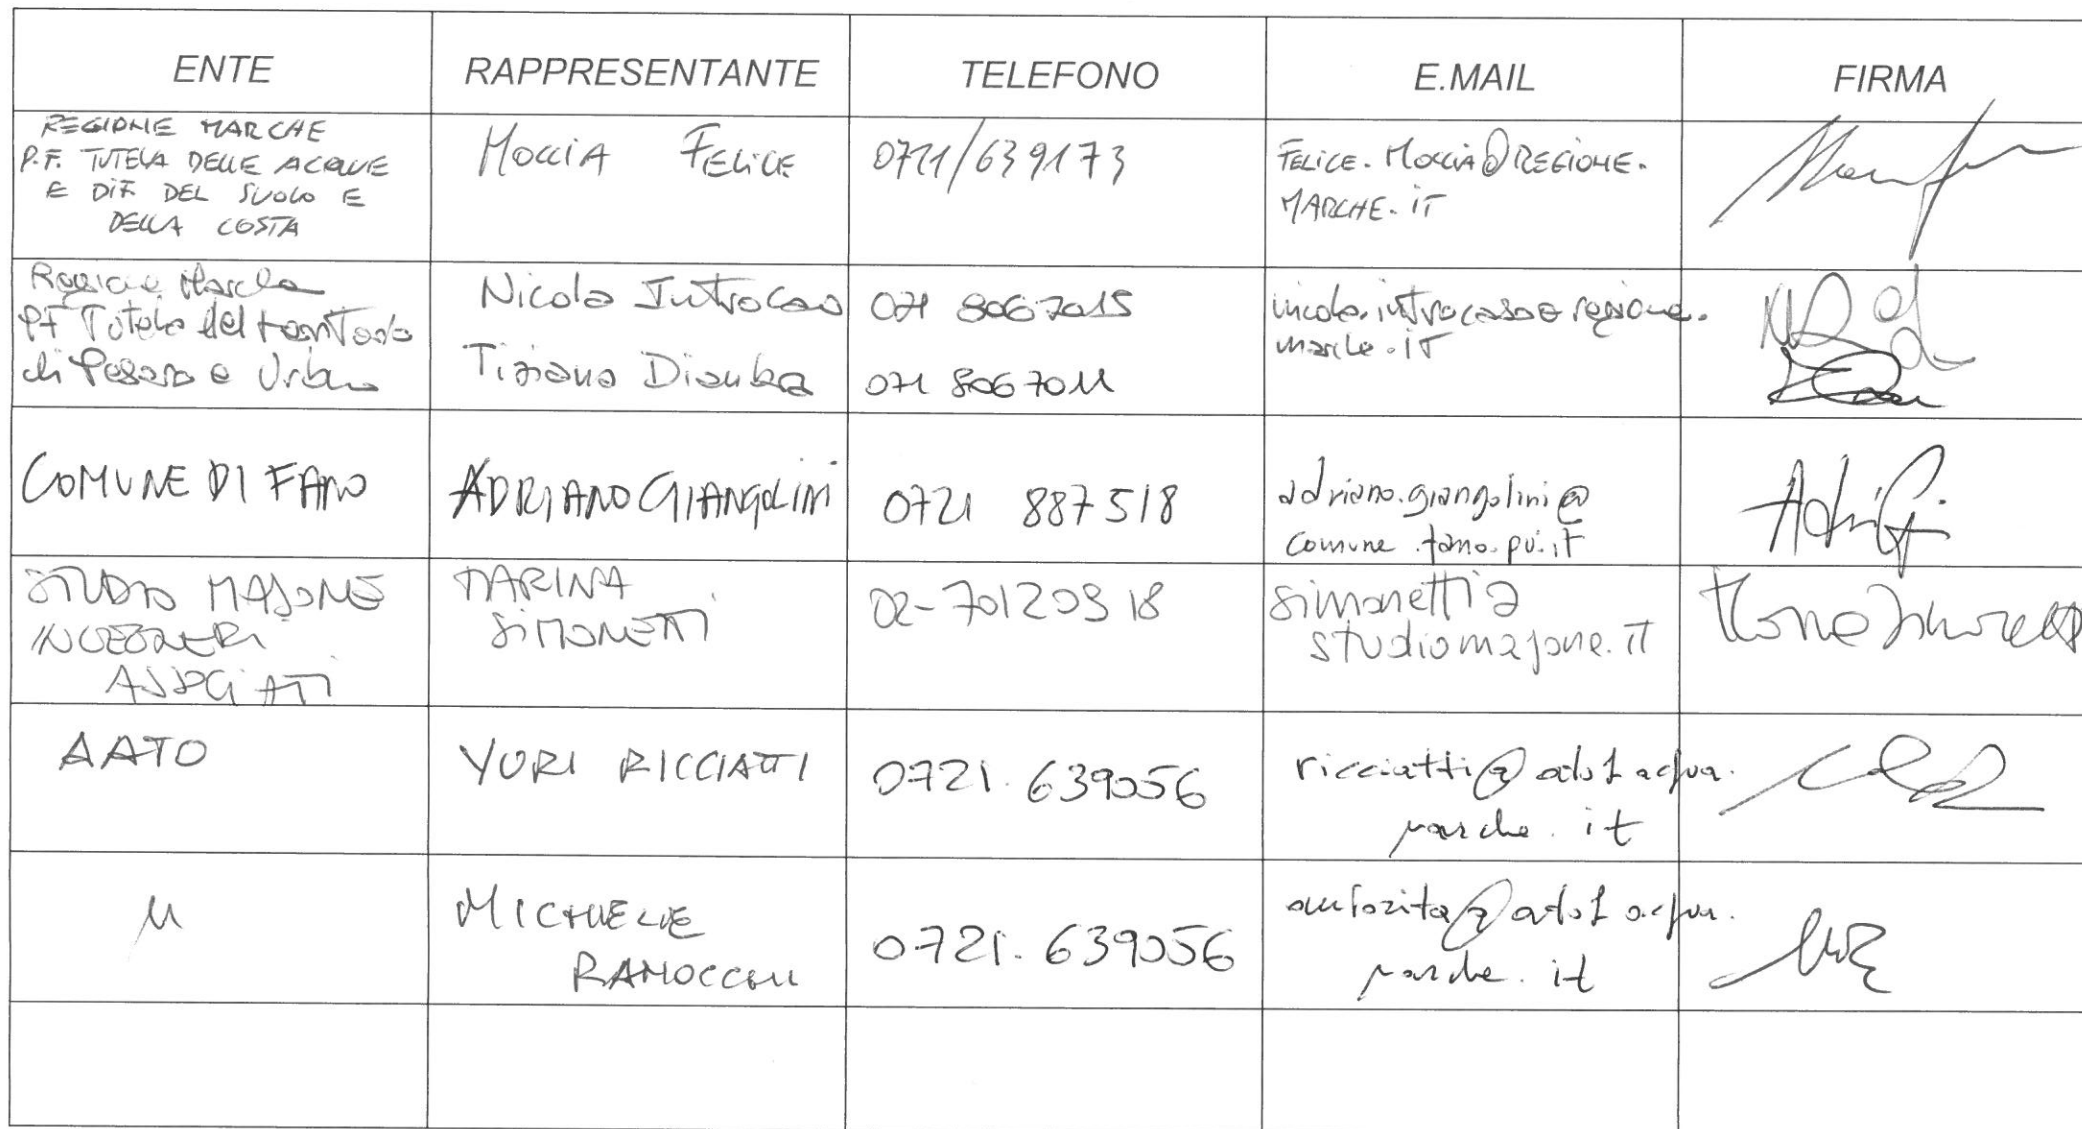 ENTE RAPPRESENTANTE TELEFONO E.MAIL FIRMA
REGIONE MARCHE
P.F. TUTELA DELLE ACQUE
E DIF. DEL SUOLO E
DELLA COSTA
MOCCIA FELICE
0721/639173
FELICE.MOCCIA@REGIONE.
MARCHE.IT
Regione Marche
PF Tutela del territorio
di Pesaro e Urbino
Nicola Introcaso
Tiziana Dia
071 8067015
071 8067011
nicola.introcaso@regione.
marche.it
COMUNE DI FANO
ADRIANO GIANGOLINI
0721 887518
adriano.giangolini@
comune.fano.pu.it
STUDIO MAJONE
INGEGNERI
ASSOCIATI
MARINA
SIMONETTI
02-70120918
simonetti@
studiomajone.it
AATO
YURI RICCIATTI
0721.639056
ricciatti@ato1acqua.
marche.it
"
MICHELE
RANOCCHI
0721.639056
autorita@ato1acqua.
marche.it